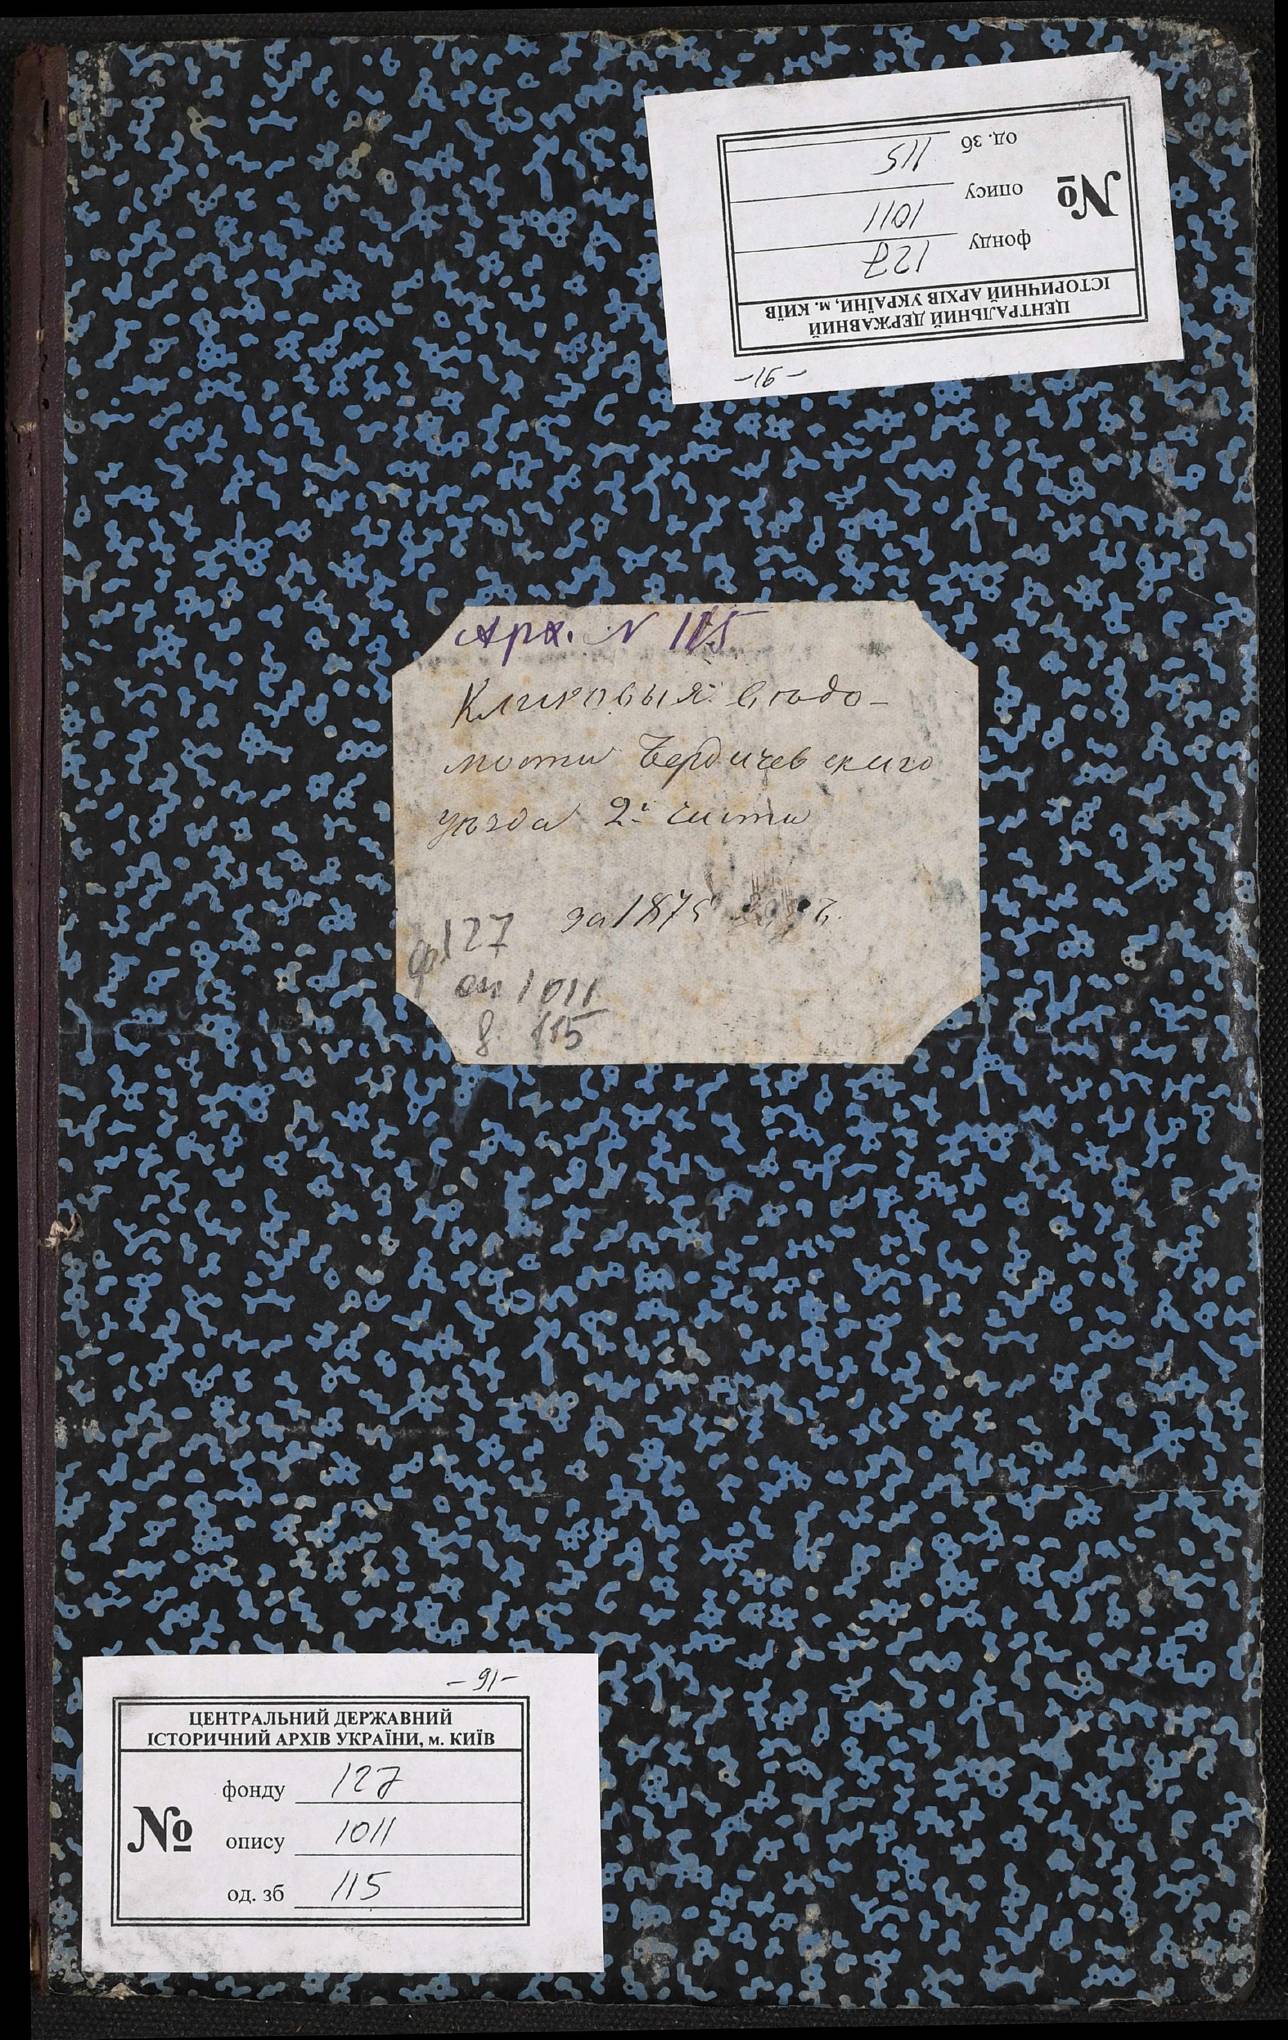 ЦЕНТРАЛЬНИЙ ДЕРЖАВНИЙ
ІСТОРИЧНИЙ АРХІВ УКРАЇНИ, м. КИЇВ
№
фонду 127
опису 1011
од. зб 115
Арх. N 115
Клировыя вѣдо-
мости Бердичевскаго
уѣзда 2й части
за 1875
ф 127
оп 1011
д. 115
- 91 -
ЦЕНТРАЛЬНИЙ ДЕРЖАВНИЙ
ІСТОРИЧНИЙ АРХІВ УКРАЇНИ, м. КИЇВ
№
фонду 127
опису 1011
од. зб 115